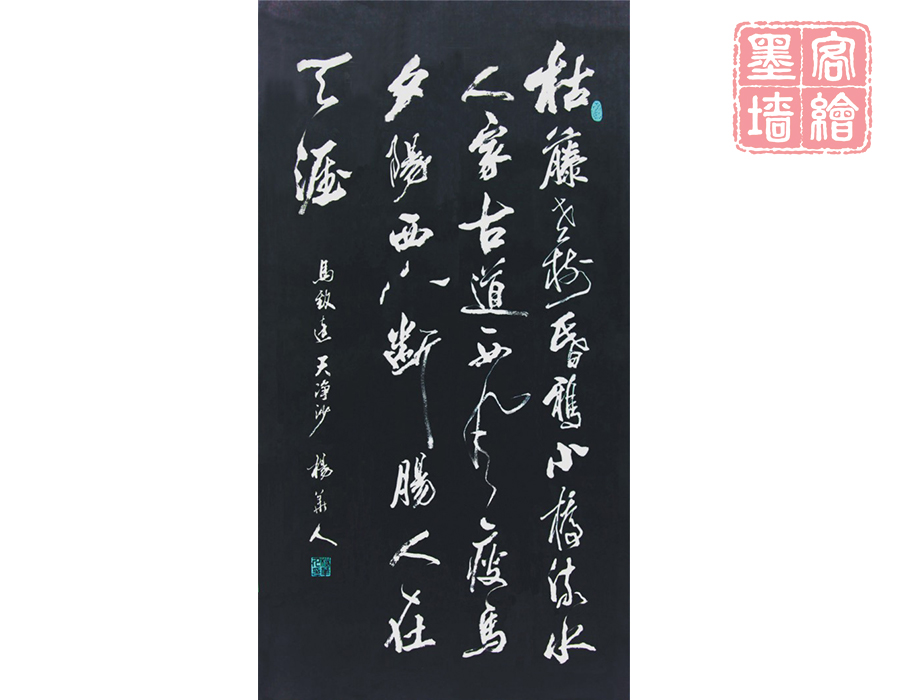 枯藤老樹昏鴉小橋流水
人家古道西風瘦馬
夕陽西下斷腸人在
天涯
馬致遠天净沙 楊華人
墨客
墙繪